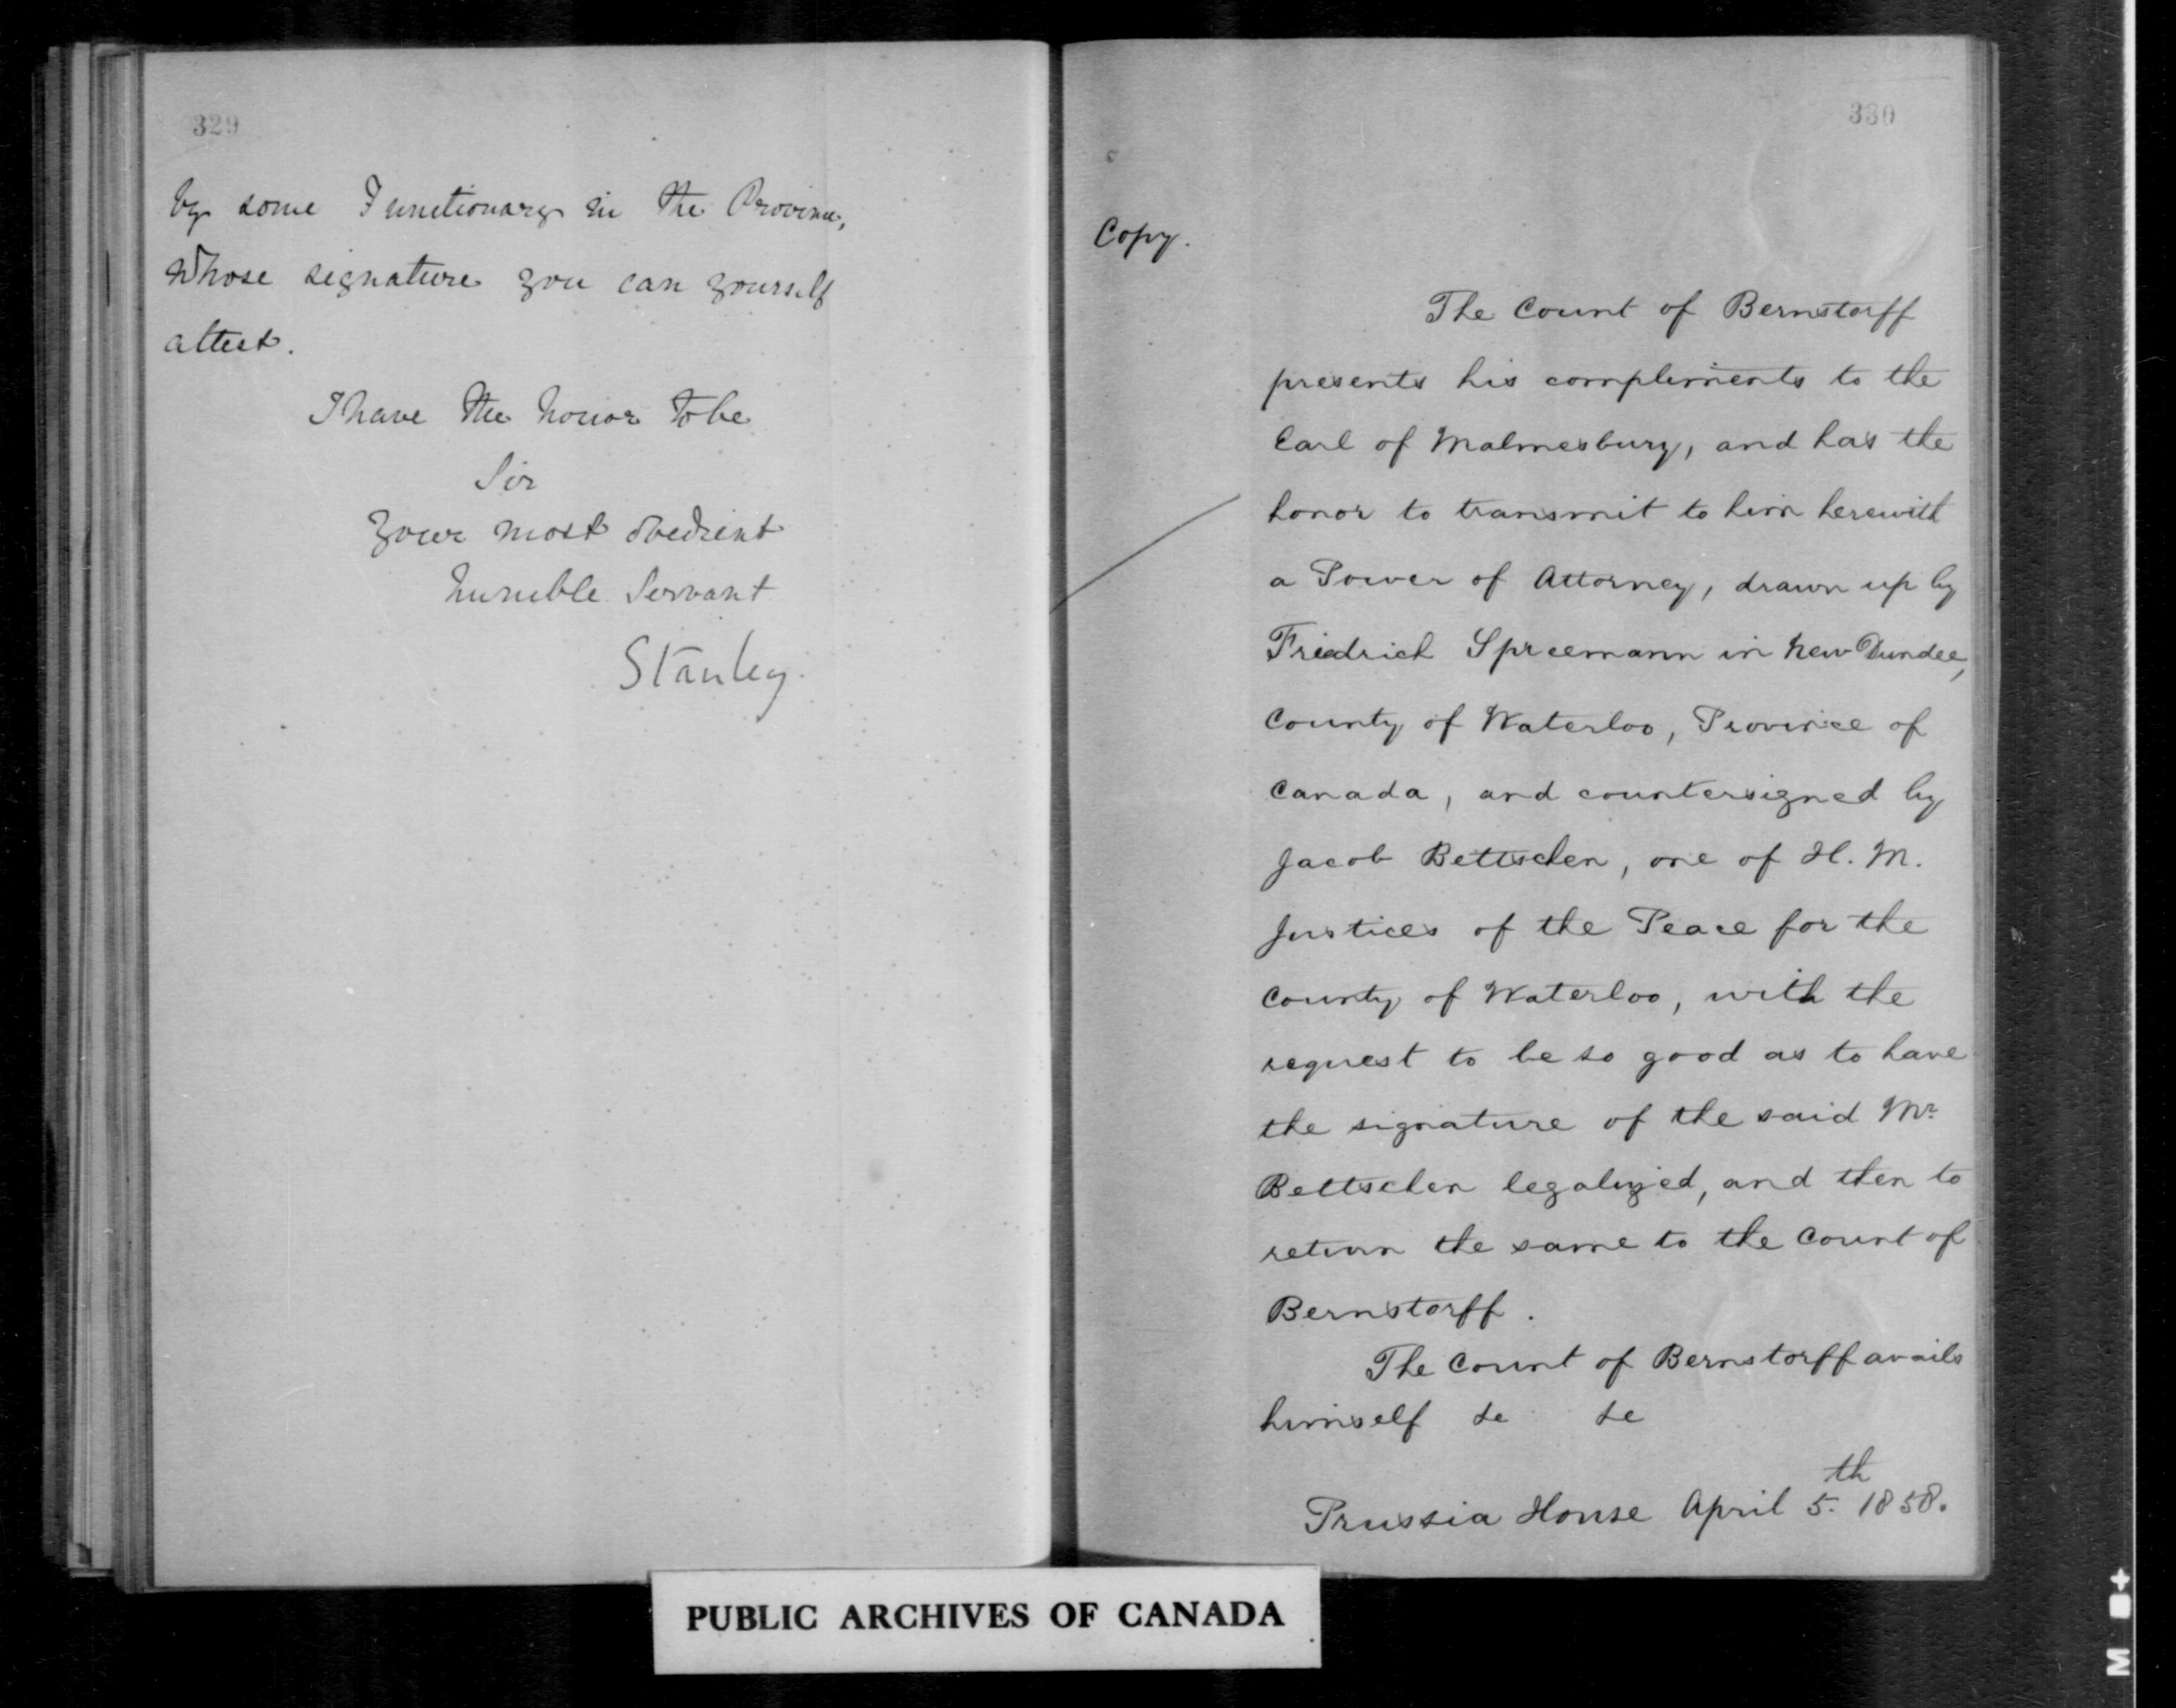 329
by some Functionary in the Province,
whose signature you can yourself
attest.
I have the honor to be
Sir
Your most obedient
humble Servant
Stanley.
330
Copy.
The Count of Bernstorff
presents his compliments to the
Earl of Malmesbury, and has the
honor to transmit to him herewith
a Power of Attorney, drawn up by
Friedrich Spreemann in New Dundee,
County of Waterloo, Province of
Canada, and countersigned by
Jacob Bettschen, one of H. M.
Justices of the Peace for the
County of Waterloo, with the
request to be so good as to have
the signature of the said Mr.
Bettschen legalized, and then to
return the same to the Count of
Bernstorff.
The Count of Bernstorff avails
himself &c &c
Prussia House April 5th 1858.
PUBLIC ARCHIVES OF CANADA